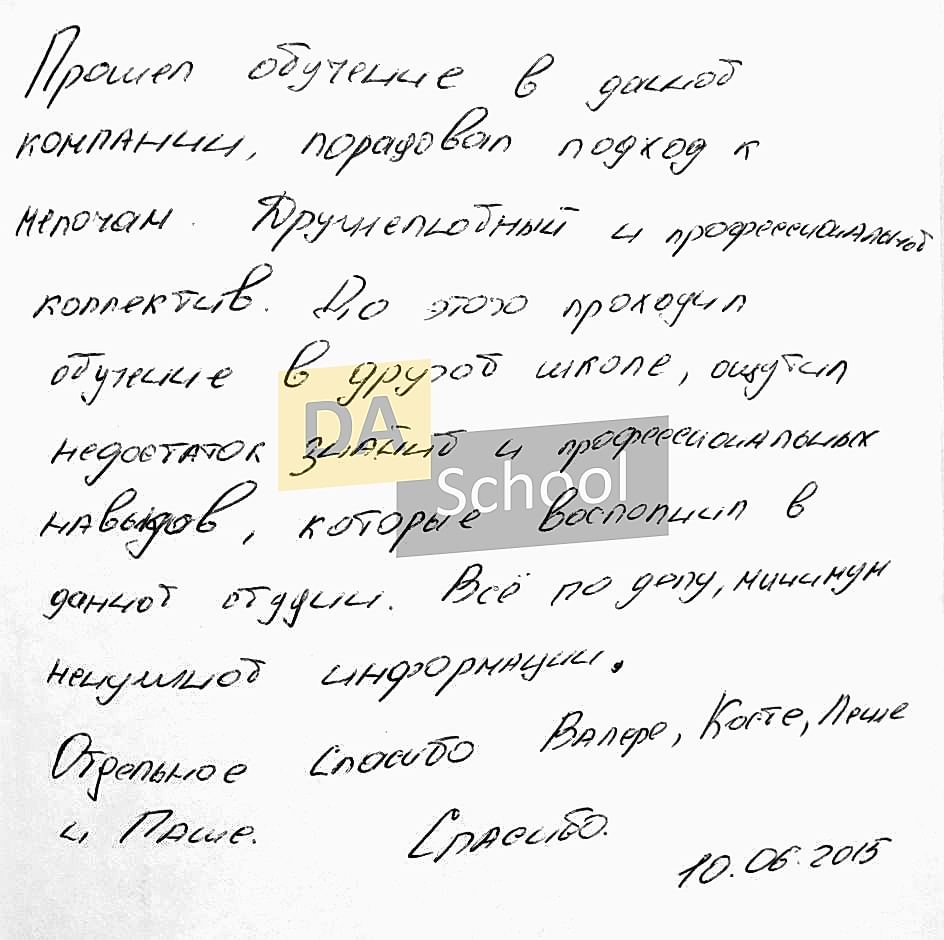 Прошел обучение в данной
компании, порадовал подход к
мелочам. Дружелюбный и профессиональной
коллектив. До этого проходил
обучение в другой школе, ощутил
недостаток знаний и профессиональных
DA
School
навыков, которые восполнил в
данной студии. Всё по делу, минимум
ненужной информации.
Отдельное спасибо Валере, Косте, Леше
и Паше. Спасибо.
10.06.2015